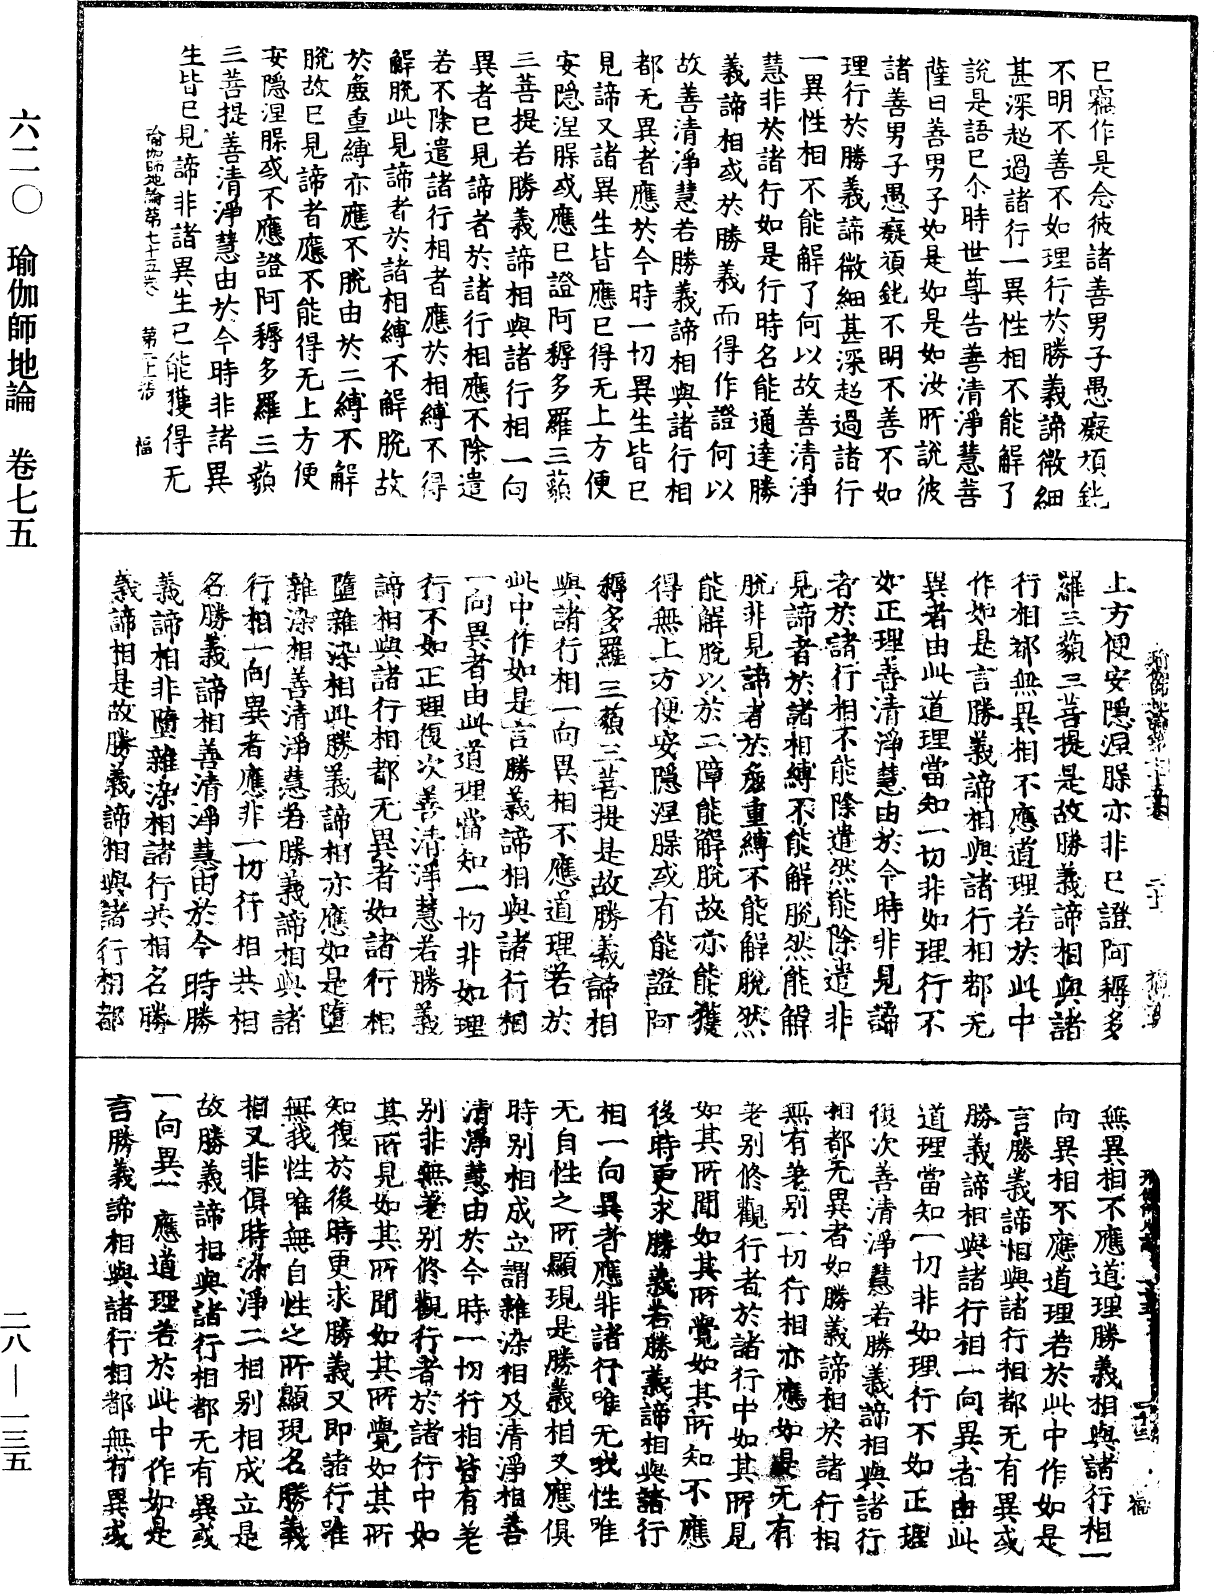 六二〇　瑜伽師地論　卷七五
二八—一三五
已竊作是念彼諸善男子愚癡頑鈍
不明不善不如理行於勝義諦微細
甚深超過諸行一異性相不能解了
說是語已尒時世尊告善清淨慧菩
薩曰善男子如是如是如汝所說彼
諸善男子愚癡頑鈍不明不善不如
理行於勝義諦微細甚深超過諸行
一異性相不能解了何以故善清淨
慧非於諸行如是行時名能通達勝
義諦相或於勝義而得作證何以
故善清淨慧若勝義諦相與諸行相
都无異者應於今時一切異生皆已
見諦又諸異生皆應已得无上方便
安隐涅槃或應已證阿耨多羅三藐
三菩提若勝義諦相與諸行相一向
異者已見諦者於諸行相應不除遣
若不除遣諸行相者應於相縛不得
解脫此見諦者於諸相縛不解脫故
於麁重縛亦應不脫由於二縛不解
脫故已見諦者應不能得无上方便
安隐涅槃或不應證阿耨多羅三藐
三菩提善清淨慧由於今時非諸異
生皆已見諦非諸異生已能獲得无
瑜伽師地論第七十五卷　第二十張　福
上方便安隐涅槃亦非已證阿耨多
羅三藐三菩提是故勝義諦相與諸
行相都無異相不應道理若於此中
作如是言勝義諦相與諸行相都无
異者由此道理當知一切非如理行不
如正理善清淨慧由於今時非見諦
者於諸行相不能除遣然能除遣非
見諦者於諸相縛不能解脫然能解
脫非見諦者於麁重縛不能解脫然
能解脫以於二障能解脫故亦能獲
得無上方便安隐涅槃或有能證阿
耨多羅三藐三菩提是故勝義諦相
與諸行相一向異相不應道理若於
此中作如是言勝義諦相與諸行相
一向異者由此道理當知一切非如理
行不如正理復次善清淨慧若勝義
諦相與諸行相都无異者如諸行相
墮雜染相此勝義諦相亦應如是墮
雜染相善清淨慧若勝義諦相與諸
行相一向異者應非一切行相共相
名勝義諦相善清淨慧由於今時勝
義諦相非墮雜染相諸行共相名勝
義諦相是故勝義諦相與諸行相都
無異相不應道理勝義相與諸行相一
向異相不應道理若於此中作如是
言勝義諦相與諸行相都无有異或
勝義諦相與諸行相一向異者由此
道理當知一切非如理行不如正理
復次善清淨慧若勝義諦相與諸行
相都无異者如勝義諦相於諸行相
無有差別一切行相亦應如是无有
差別修觀行者於諸行中如其所見
如其所聞如其所覺如其所知不應
後時更求勝義若勝義諦相與諸行
相一向異者應非諸行唯无我性唯
无自性之所顯現是勝義相又應俱
時別相成立謂雜染相及清淨相善
清淨慧由於今時一切行相皆有差
別非無差別修觀行者於諸行中如
其所見如其所聞如其所覺如其所
知復於後時更求勝義又即諸行唯
無我性唯無自性之所顯現名勝義
相又非俱時染淨二相別相成立是
故勝義諦相與諸行相都无有異或
一向異應道理若於此中作如是
言勝義諦相與諸行相都無有異或